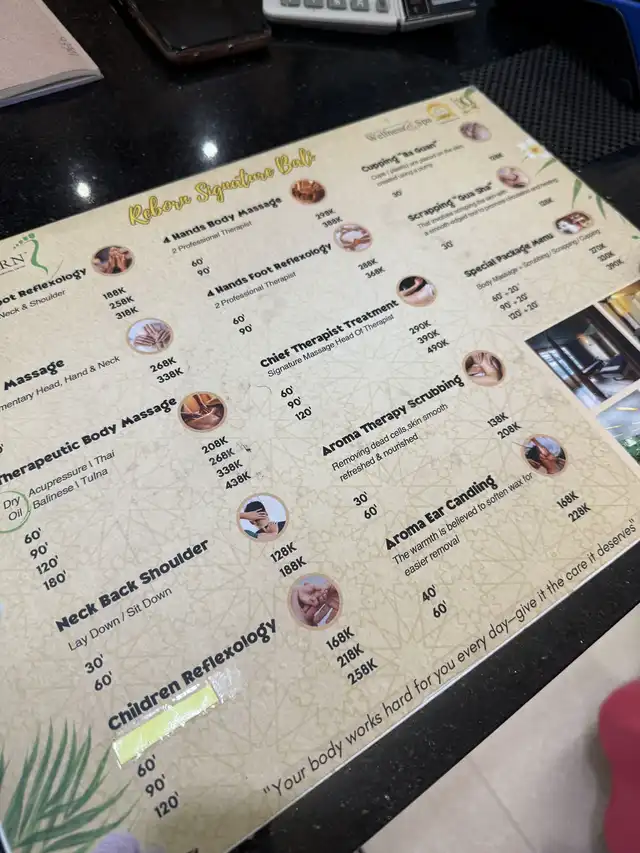 Reborn Signature Bali
RN
oot Reflexology
Neck & Shoulder
188K
258K
318K
Massage
mentary Head, Hand & Neck
268K
338K
Therapeutic Body Massage
Dry
Oil
Acupressure I Thai
Balinese I Tulna
60' 208K
90' 268K
120' 338K
180' 438K
Neck Back Shoulder
Lay Down / Sit Down
30' 128K
60' 188K
Children Reflexology
60' 168K
90' 218K
120' 258K
4 Hands Body Massage
2 Professional Therapist
60' 298K
90' 388K
4 Hands Foot Reflexology
2 Professional Therapist
60' 288K
90' 368K
Chief Therapist Treatment
Signature Massage Head Of Therapist
60' 290K
90' 390K
120' 490K
Aroma Therapy Scrubbing
Removing dead cells,skin smooth
refreshed & nourished
30' 138K
60' 208K
Aroma Ear Candling
The warmth is believed to soften wax for
easier removal
40' 168K
60' 228K
Wellness & Spa
Cupping
are placed on the skin
30'
Scrapping "Gua Sha"
30'
Special Package Menu
Body Massage + Scrubbing / Scrapping / Cupping
60' + 20'
90' + 20'
120' + 20' 390K
"Your body works hard for you every day—give it the care it deserves"